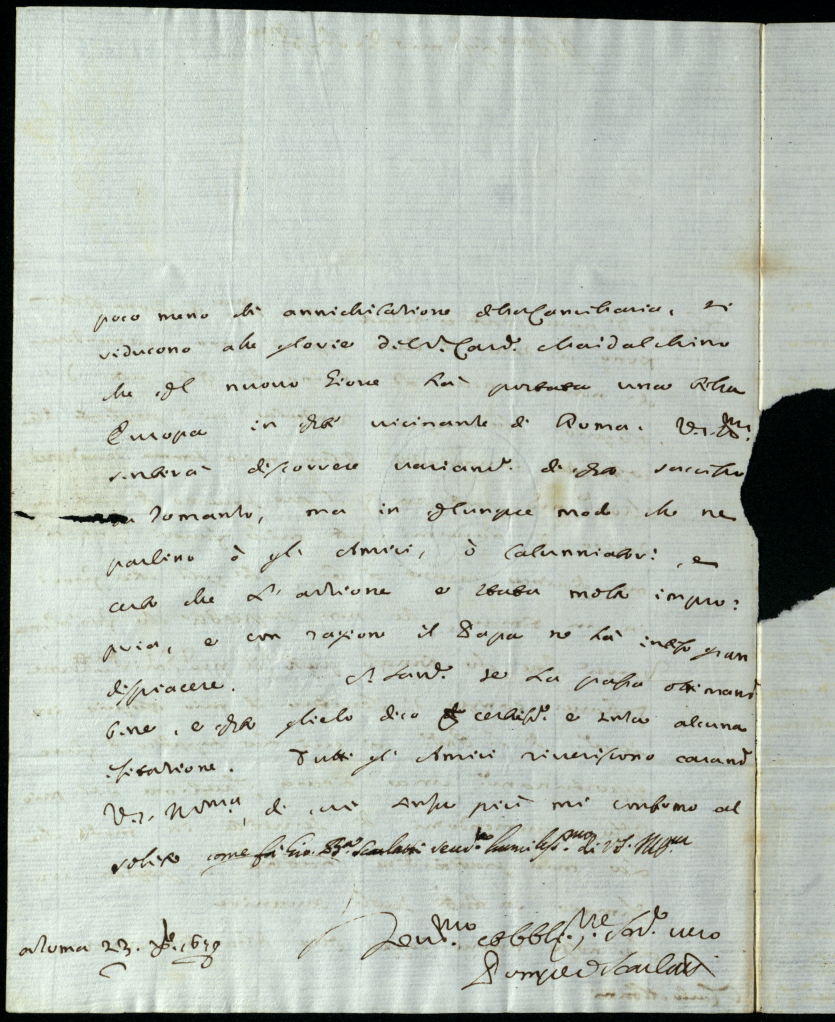 poco meno di annichilatione della Cancellaria, si
riducono alle glorie del S.r Card.e Maidalchino
che q.l nuovo Giove hà portata una bella
Europa in q.te vicinanze di Roma. V.S. Ill.ma
sentirà discorrere variam.te di q.to
Romanto, ma in q.lunque modo che ne
parlino ò gli Amici, ò Calunniatori, è
certo che l'attione è stata molto impro:
pria, e con ragione il Papa ne hà inteso gran
dispiacere. Il Card.e se la passa ottimam.te
bene, e q.to glielo dico certiss.o e senza alcuna
esitatione. Tutti gli Amici riveriscono caram.te
V.S. Ill.ma, di cui senza più mi confermo al
solito come fà Gio. B.a Scarlatti serv.re humiliss.mo di V.S. Ill.ma
Roma 23. 1678
Dev.mo et obblig.mo Ser.re vero
Pompeo Scarlatti